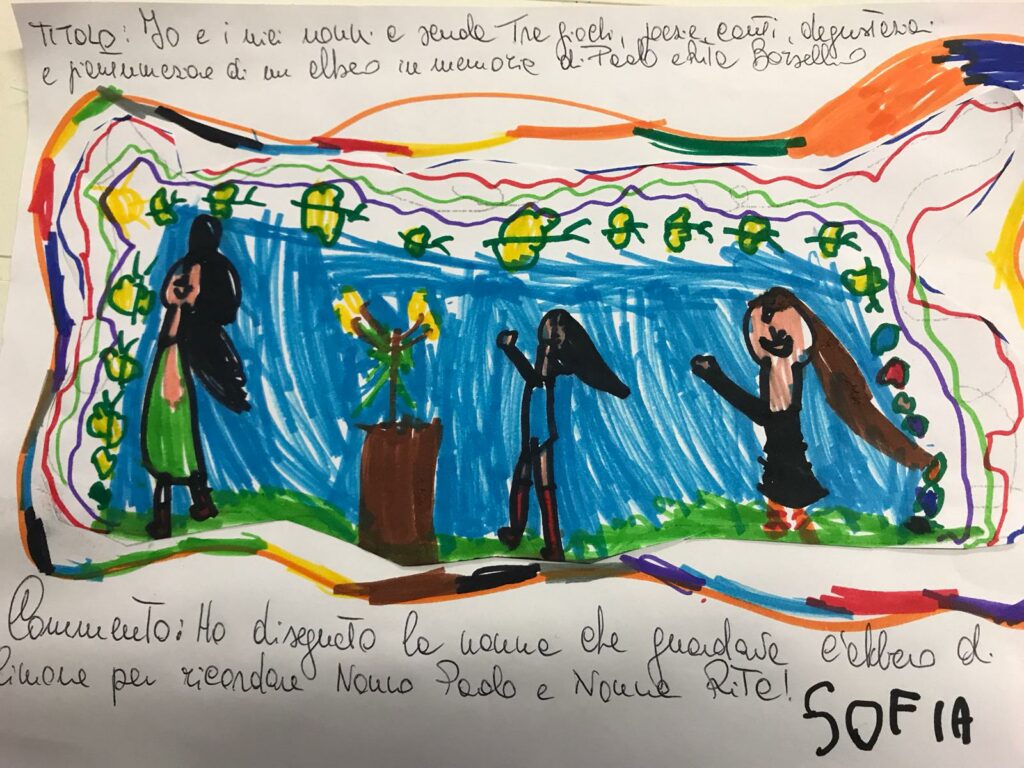 TITOLO: Io e i miei nonni a scuola Tra giochi, poesie, canti, degustazioni
e piantumazione di un albero in memoria di Paolo e Rita Borsellino
Commento: Ho disegnato la nonna che guardava l'albero di
limone per ricordare Nonno Paolo e Nonna Rita!
SOFIA